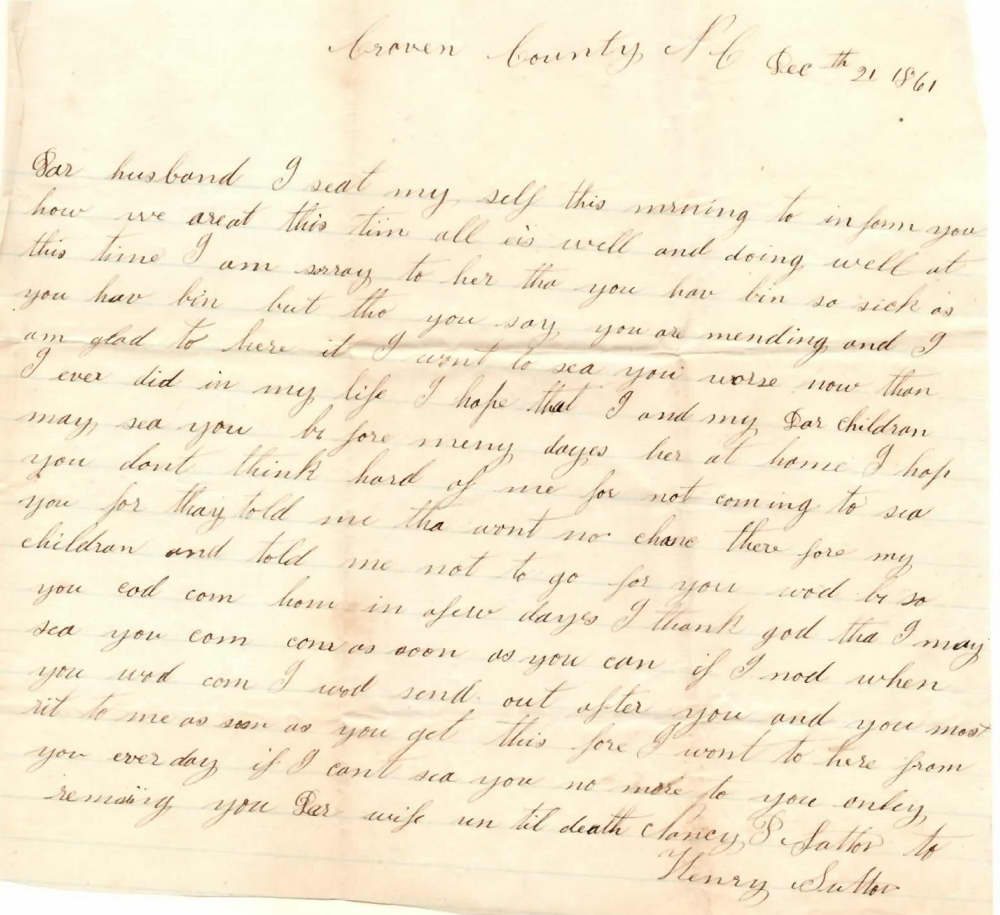 Craven County, N C Dec th 21 1861
Dar husband I seat my self this mrning to in form you
how we areat this tiim all eis well and doing well at
this time I am srray to her tha you hav bin so sick as
you hav bin but tha you say you are mending and I
am glad to here it I wont to sea you worse now than
I ever did in my life I hope that I and my Dar children
may sea you be fore meny dayes her at home I hop
you dont think hard of me for not coming to sea
you for thay told me tha wont no chanc there fore my
children and told me not to go for you wod be so
you cod com hom in afew dayes I thank god tha I may
sea you com come as soon as you can if I nod when
you wod com I wod send out after you and you most
rit to me as soon as you get this fore I wont to here from
you ever day if I cant sea you no more to you onley
remaiing you Dear wife un til death Nancy S Sutton to
Henry Sutton